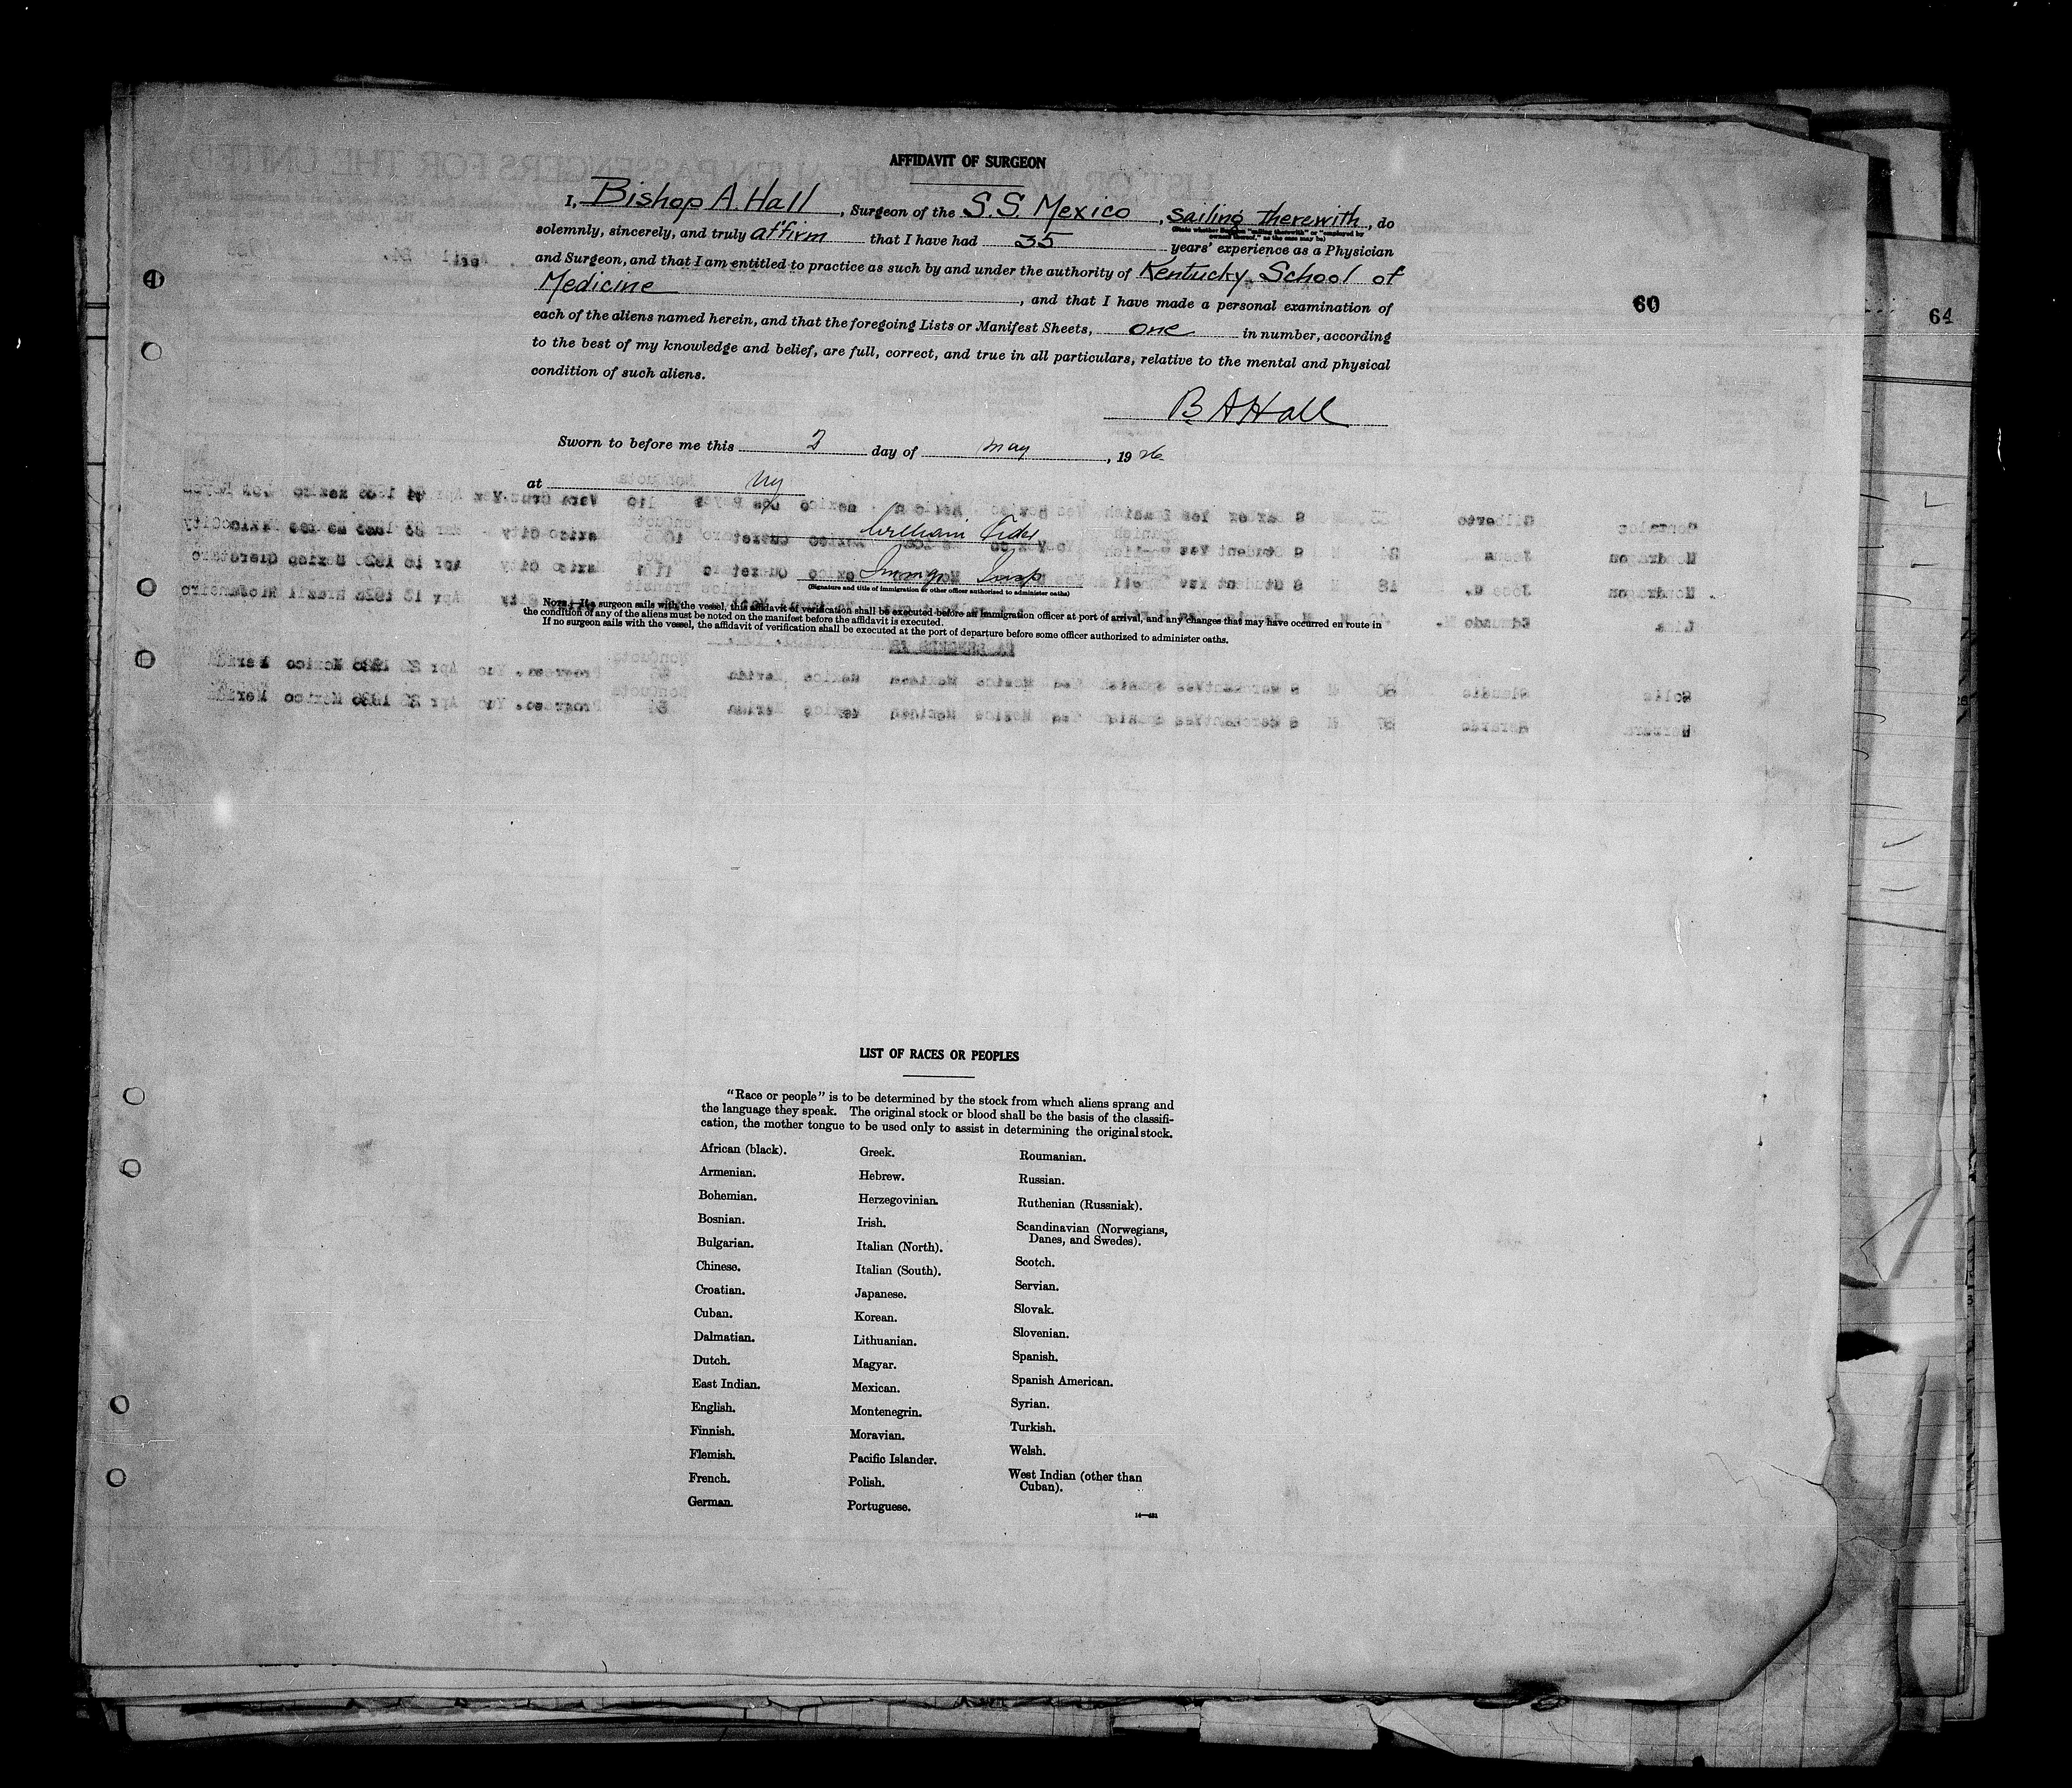 AFFIDAVIT OF SURGEON
I, Bishop A. Hall, Surgeon of the S.S. Mexico, sailing therewith, do
(State whether Surgeon "sailing therewith" or "employed by
owners thereof," as the case may be)
solemnly, sincerely, and truly affirm that I have had 35 years' experience as a Physician
and Surgeon, and that I am entitled to practice as such by and under the authority of Kentucky School of
Medicine, and that I have made a personal examination of
each of the aliens named herein, and that the foregoing Lists or Manifest Sheets, one in number, according
to the best of my knowledge and belief, are full, correct, and true in all particulars, relative to the mental and physical
condition of such aliens.
B A Hall
Sworn to before me this 2 day of May, 1926
at NY
William
Immgr Insp
(Signature and title of immigration or other officer authorized to administer oaths)
NOTE.—If a surgeon sails with the vessel, this affidavit of verification shall be executed before an immigration officer at port of arrival, and any changes that may have occurred en route in
the condition of any of the aliens must be noted on the manifest before the affidavit is executed.
If no surgeon sails with the vessel, the affidavit of verification shall be executed at the port of departure before some officer authorized to administer oaths.
4
60
64
LIST OF RACES OR PEOPLES
"Race or people" is to be determined by the stock from which aliens sprang and
the language they speak. The original stock or blood shall be the basis of the classifi-
cation, the mother tongue to be used only to assist in determining the original stock.
African (black).
Armenian.
Bohemian.
Bosnian.
Bulgarian.
Chinese.
Croatian.
Cuban.
Dalmatian.
Dutch.
East Indian.
English.
Finnish.
Flemish.
French.
German.
Greek.
Hebrew.
Herzegovinian.
Irish.
Italian (North).
Italian (South).
Japanese.
Korean.
Lithuanian.
Magyar.
Mexican.
Montenegrin.
Moravian.
Pacific Islander.
Polish.
Portuguese.
Roumanian.
Russian.
Ruthenian (Russniak).
Scandinavian (Norwegians,
Danes, and Swedes).
Scotch.
Servian.
Slovak.
Slovenian.
Spanish.
Spanish American.
Syrian.
Turkish.
Welsh.
West Indian (other than
Cuban).